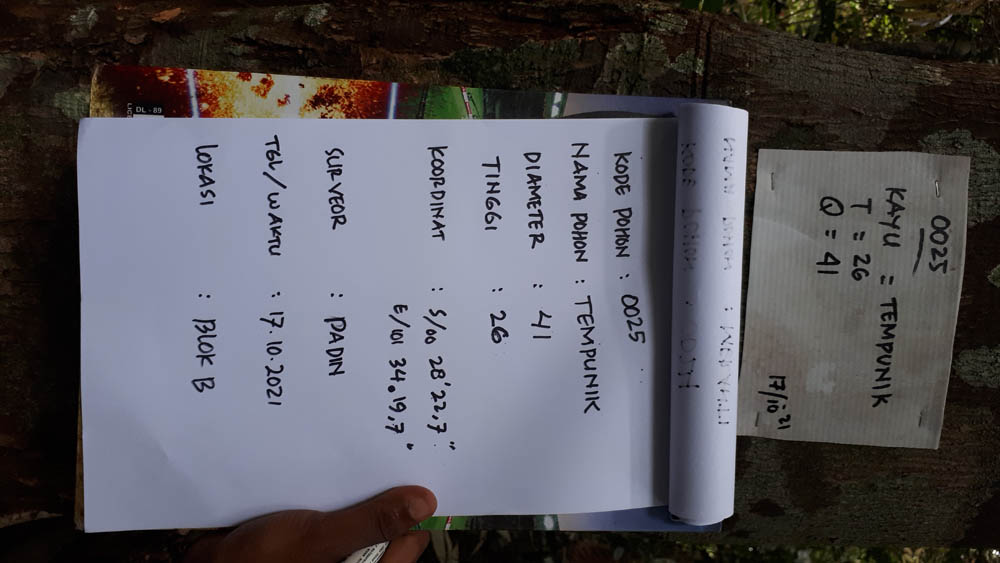 0025
KAYU = TEMPUNIK
T = 26
Q = 41
17/10 21
KODE POHON : 0025
NAMA POHON : TEMPUNIK
DIAMETER : 41
TINGGI : 26
KOORDINAT : S/00 28'22,7"
E/101 34.19,7"
SURVEOR : PADIN
TGL/WAKTU : 17.10.2021
LOKASI : BLOK B
DL - 89
LICE